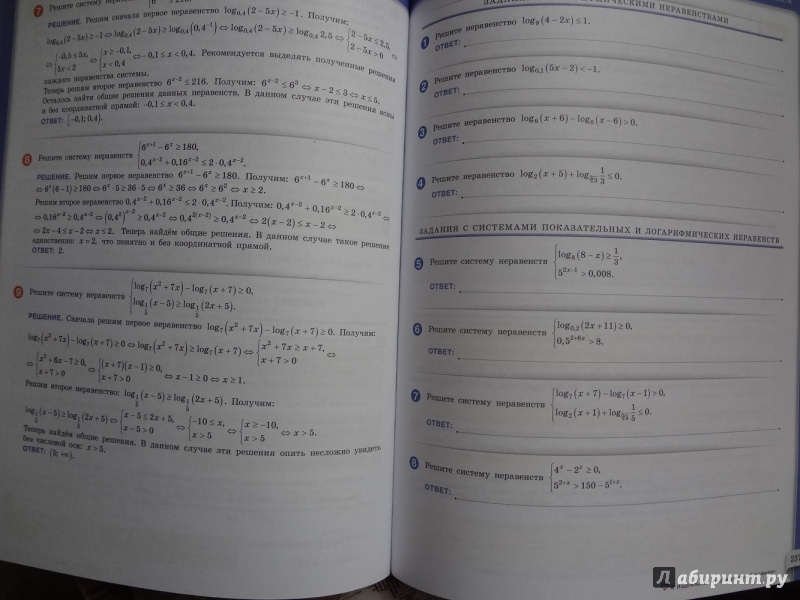 7 Решите систему неравенств
РЕШЕНИЕ. Решим сначала первое неравенство log₀,₄(2 − 5x) ≥ −1. Получим:
log₀,₄(2−5x) ≥ −1 ⇔ log₀,₄(2−5x) ≥ log₀,₄(0,4⁻¹) ⇔ log₀,₄(2−5x) ≥ log₀,₄ 2,5 ⇔ {2−5x ≤ 2,5, 2−5x > 0 ⇔
⇔ {−0,5 ≤ 5x, 5x < 2 ⇔ {x ≥ −0,1, x < 0,4 ⇔ −0,1 ≤ x < 0,4. Рекомендуется выделять полученные решения
каждого неравенства системы.
Теперь решим второе неравенство 6ˣ⁻² ≤ 216. Получим: 6ˣ⁻² ≤ 6³ ⇔ x − 2 ≤ 3 ⇔ x ≤ 5.
Осталось найти общие решения данных неравенств. В данном случае эти решения ясны
и без координатной прямой: −0,1 ≤ x < 0,4.
ОТВЕТ: [−0,1; 0,4).
8 Решите систему неравенств {6ˣ⁺¹ − 6ˣ ≥ 180, 0,4ˣ⁻² + 0,16ˣ⁻² ≤ 2·0,4ˣ⁻².
РЕШЕНИЕ. Решим первое неравенство 6ˣ⁺¹ − 6ˣ ≥ 180. Получим: 6ˣ⁺¹ − 6ˣ ≥ 180 ⇔
⇔ 6ˣ(6−1) ≥ 180 ⇔ 6ˣ·5 ≥ 36·5 ⇔ 6ˣ ≥ 36 ⇔ 6ˣ ≥ 6² ⇔ x ≥ 2.
Решим второе неравенство 0,4ˣ⁻² + 0,16ˣ⁻² ≤ 2·0,4ˣ⁻². Получим: 0,4ˣ⁻² + 0,16ˣ⁻² ≥ 2·0,4ˣ⁻² ⇔
⇔ 0,16ˣ⁻² ≥ 0,4ˣ⁻² ⇔ (0,4²)ˣ⁻² ≥ 0,4ˣ⁻² ⇔ 0,4²⁽ˣ⁻²⁾ ≥ 0,4ˣ⁻² ⇔ 2(x−2) ≤ x−2 ⇔
⇔ 2x − 4 ≤ x − 2 ⇔ x ≤ 2. Теперь найдём общие решения. В данном случае такое решение
единственно: x = 2, что понятно и без координатной прямой.
ОТВЕТ: 2.
9 Решите систему неравенств {log₇(x² + 7x) − log₇(x + 7) ≥ 0, log_{1/5}(x − 5) ≥ log_{1/5}(2x + 5).
РЕШЕНИЕ. Сначала решим первое неравенство log₇(x² + 7x) − log₇(x + 7) ≥ 0. Получим:
log₇(x² + 7x) − log₇(x + 7) ≥ 0 ⇔ log₇(x² + 7x) ≥ log₇(x + 7) ⇔ {x² + 7x ≥ x + 7, x + 7 > 0 ⇔
⇔ {x² + 6x − 7 ≥ 0, x + 7 > 0 ⇔ {(x + 7)(x − 1) ≥ 0, x + 7 > 0 ⇔ x − 1 ≥ 0 ⇔ x ≥ 1.
Решим второе неравенство: log_{1/5}(x − 5) ≥ log_{1/5}(2x + 5). Получим:
log_{1/5}(x − 5) ≥ log_{1/5}(2x + 5) ⇔ {x − 5 ≤ 2x + 5, x − 5 > 0 ⇔ {−10 ≤ x, x > 5 ⇔ {x ≥ −10, x > 5 ⇔ x > 5.
Теперь найдём общие решения. В данном случае эти решения опять несложно увидеть
без числовой оси: x > 5.
ОТВЕТ: (5; +∞).
1 Решите неравенство log₉(4 − 2x) ≤ 1.
ОТВЕТ:
2 Решите неравенство log₀,₁(5x − 2) < −1.
ОТВЕТ:
3 Решите неравенство log₆(x + 6) − log₆(x − 6) > 0.
ОТВЕТ:
4 Решите неравенство log₂(x + 5) + log
ОТВЕТ:
ЗАДАНИЯ С СИСТЕМАМИ ПОКАЗАТЕЛЬНЫХ И ЛОГАРИФМИЧЕСКИХ НЕРАВЕНСТВ
5 Решите систему неравенств {log₈(8 − x) ≥ 1/3, 5²ˣ⁻¹ > 0,008.
ОТВЕТ:
6 Решите систему неравенств {log₀,₂(2x + 11) ≥ 0, 0,5²⁺⁶ˣ > 8.
ОТВЕТ:
7 Решите систему неравенств {log₇(x + 7) − log₇(x − 1) > 0, log₂(x + 1) + log
ОТВЕТ:
8 Решите систему неравенств {4ˣ − 2ˣ ≥ 0, 5²⁺ˣ > 150 − 5¹⁺ˣ.
ОТВЕТ:
Лабиринт.ру